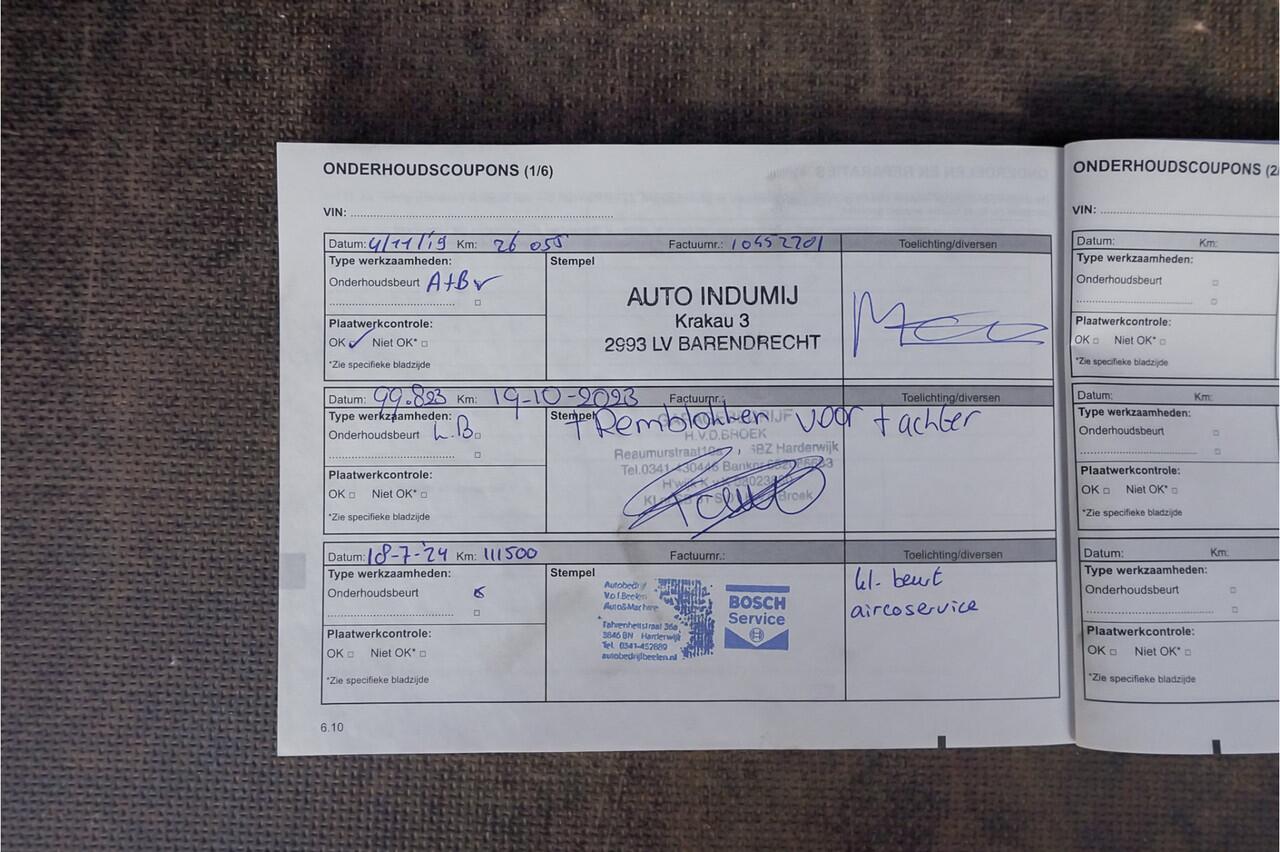 ONDERHOUDSCOUPONS (1/6)
VIN:
Datum: 4/11/19 Km: 26 055 Factuurnr.: 10452701 Toelichting/diversen
Type werkzaamheden:
Onderhoudsbeurt A+B
Stempel
AUTO INDUMIJ
Krakau 3
2993 LV BARENDRECHT
Plaatwerkcontrole:
OK Niet OK*
*Zie specifieke bladzijde
Datum: 99.823 Km: 19-10-2023 Factuurnr.: Toelichting/diversen
Type werkzaamheden:
Onderhoudsbeurt L.B
Stempel + Remblokken voor + achter
H.V.D.BROEK
Reaumurstraat Harderwijk
Tel.0341-430446
Plaatwerkcontrole:
OK Niet OK*
*Zie specifieke bladzijde
Datum: 18-7-'24 Km: 111500 Factuurnr.: Toelichting/diversen
Type werkzaamheden:
Onderhoudsbeurt
Stempel
Autobedrijf
V.o.f. Beelen
Auto&Machine
Fahrenheitstraat 36a
3846 BN Harderwijk
Tel. 0341-452889
autobedrijfbeelen.nl
BOSCH
Service
kl. beurt
aircoservice
Plaatwerkcontrole:
OK Niet OK*
*Zie specifieke bladzijde
6.10
ONDERHOUDSCOUPONS (2
VIN:
Datum: Km:
Type werkzaamheden:
Onderhoudsbeurt
Plaatwerkcontrole:
OK Niet OK*
*Zie specifieke bladzijde
Datum: Km:
Type werkzaamheden:
Onderhoudsbeurt
Plaatwerkcontrole:
OK Niet OK*
*Zie specifieke bladzijde
Datum: Km:
Type werkzaamheden:
Onderhoudsbeurt
Plaatwerkcontrole:
OK Niet OK*
*Zie specifieke bladzijde